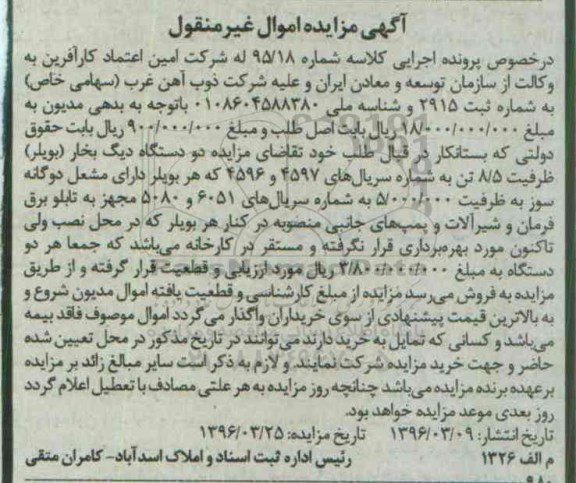 آگهی مزایده اموال غیر منقول
درخصوص پرونده اجرایی کلاسه شماره ۹۵/۱۸ له شرکت امین اعتماد کارآفرین به
وکالت از سازمان توسعه و معادن ایران و علیه شرکت ذوب آهن غرب (سهامی خاص)
به شماره ثبت ۲۹۱۵ و شناسه ملی ۰۱۰۸۶۰۴۵۸۸۳۸۰ باتوجه به بدهی مدیون به
مبلغ ۱۸/۰۰۰/۰۰۰/۰۰۰ ریال بابت اصل طلب و مبلغ ۹۰۰/۰۰۰/۰۰۰ ریال بابت حقوق
دولتی که بستانکار در قبال طلب خود تقاضای مزایده دو دستگاه دیگ بخار (بویلر)
ظرفیت ۸/۵ تن به شماره سریال‌های ۴۵۹۷ و ۴۵۹۶ که هر بویلر دارای مشعل دوگانه
سوز به ظرفیت ۵/۰۰۰/۰۰۰ به شماره سریال‌های ۶۰۵۱ و ۵۰۸۰ مجهز به تابلو برق
فرمان و شیرآلات و پمپ‌های جانبی منصوبه در کنار هر بویلر که در محل نصب ولی
تاکنون مورد بهره‌برداری قرار نگرفته و مستقر در کارخانه می‌باشد که جمعا هر دو
دستگاه به مبلغ ۳/۸۰۰/۰۰۰/۰۰۰ ریال مورد ارزیابی و قطعیت قرار گرفته و از طریق
مزایده به فروش می‌رسد مزایده از مبلغ کارشناسی و قطعیت یافته اموال مدیون شروع و
به بالاترین قیمت پیشنهادی از سوی خریداران واگذار می‌گردد اموال موصوف فاقد بیمه
می‌باشد و کسانی که تمایل به خرید دارند می‌توانند در تاریخ مذکور در محل تعیین شده
حاضر و جهت خرید مزایده شرکت نمایند. و لازم به ذکر است سایر مبالغ زائد بر مزایده
برعهده برنده مزایده می‌باشد چنانچه روز مزایده به هر علتی مصادف با تعطیل اعلام گردد
روز بعدی موعد مزایده خواهد بود.
تاریخ انتشار: ۱۳۹۶/۰۳/۰۹ تاریخ مزایده: ۱۳۹۶/۰۳/۲۵
م الف ۱۳۲۶ رئیس اداره ثبت اسناد و املاک اسدآباد- کامران متقی